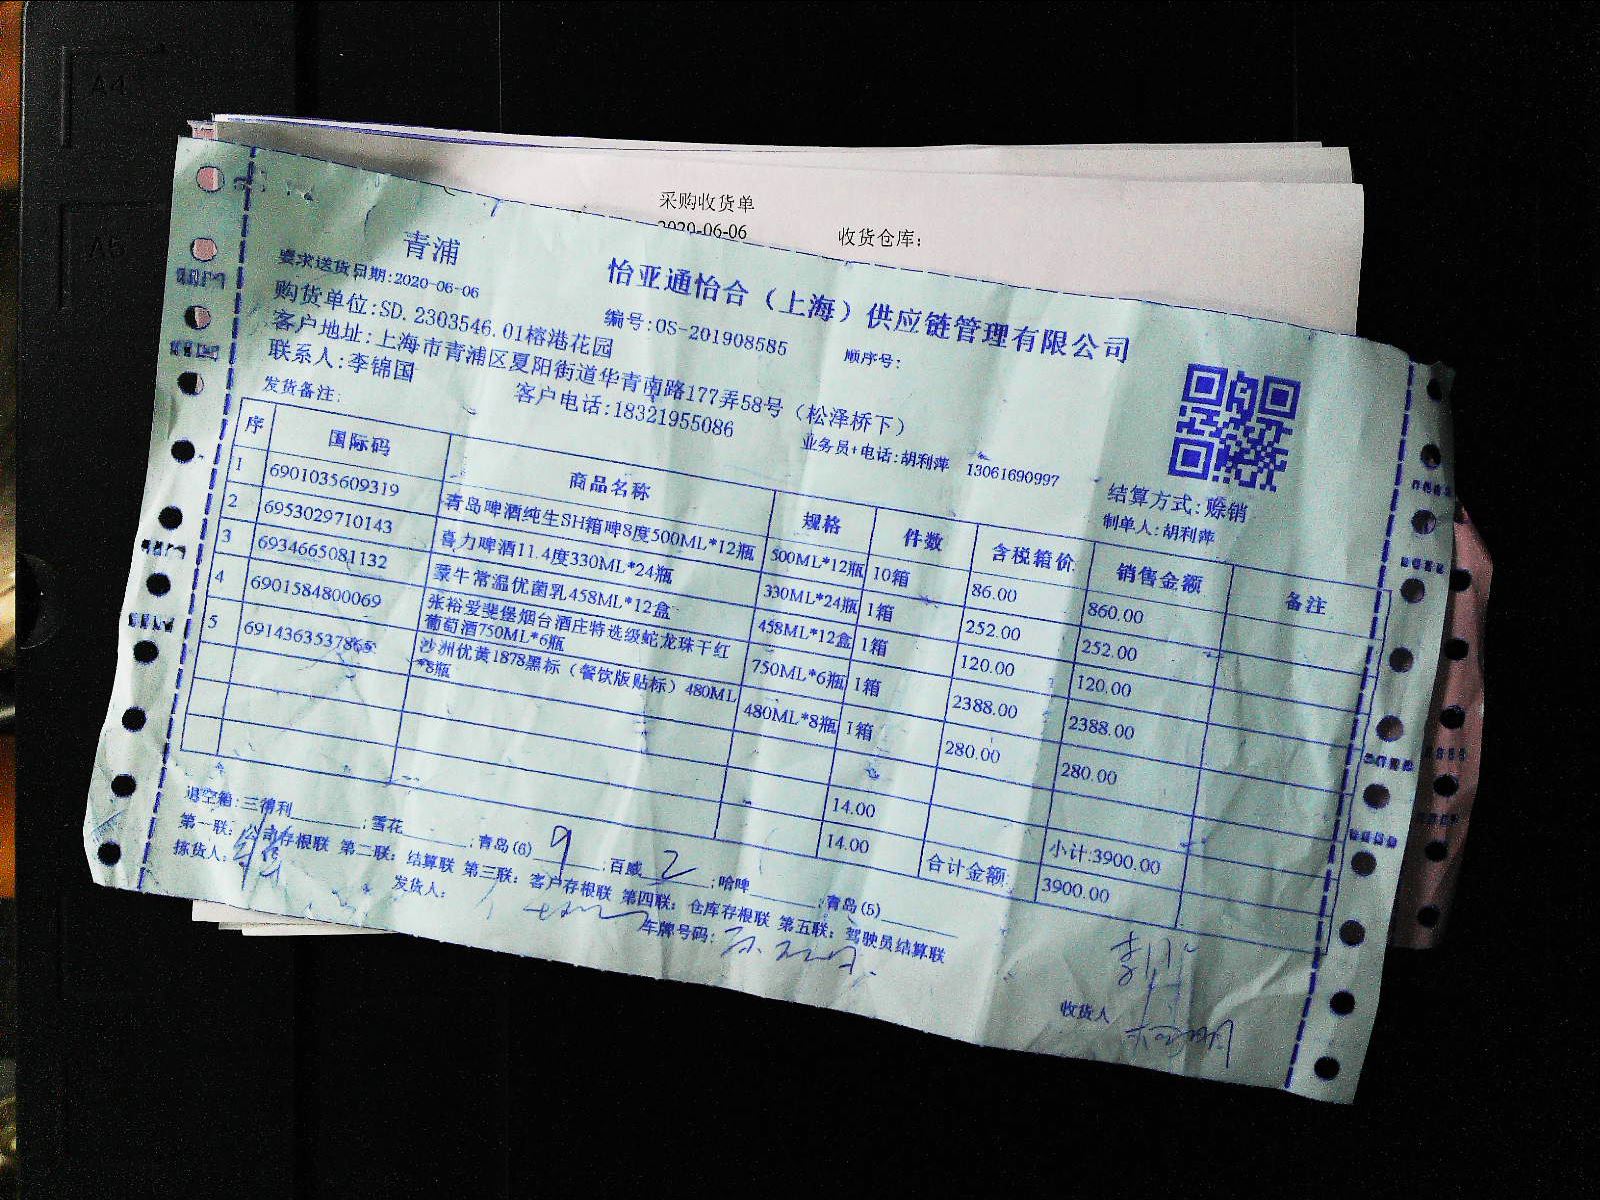 A4
A5
采购收货单
2020-06-06
收货仓库:
青浦
怡亚通怡合（上海）供应链管理有限公司
要求送货日期:2020-06-06
编号:OS-201908585
顺序号:
购货单位:SD.2303546.01榕港花园
客户地址:上海市青浦区夏阳街道华青南路177弄58号（松泽桥下）
联系人:李锦国
客户电话:18321955086
业务员+电话:胡利萍 13061690997
结算方式:赊销
发货备注:
制单人:胡利萍
序 国际码 商品名称 规格 件数 含税箱价 销售金额 备注
1 6901035609319 青岛啤酒纯生SH箱啤8度500ML*12瓶 500ML*12瓶 10箱 86.00 860.00
2 6953029710143 喜力啤酒11.4度330ML*24瓶 330ML*24瓶 1箱 252.00 252.00
3 6934665081132 蒙牛常温优菌乳458ML*12盒 458ML*12盒 1箱 120.00 120.00
4 6901584800069 张裕爱斐堡烟台酒庄特选级蛇龙珠干红
葡萄酒750ML*6瓶 750ML*6瓶 1箱 2388.00 2388.00
5 沙洲优黄1878黑标（餐饮版贴标）480ML
*8瓶 480ML*8瓶 1箱 280.00 280.00
14.00 小计:3900.00
14.00 合计金额: 3900.00
退空箱:三得利 ;雪花 ;青岛(6) 9 ;百威 2 ;哈啤 ;青岛(5)
第一联: 公司存根联 第二联: 结算联 第三联: 客户存根联 第四联: 仓库存根联 第五联: 驾驶员结算联
拣货人:
发货人:
车牌号码:
收货人